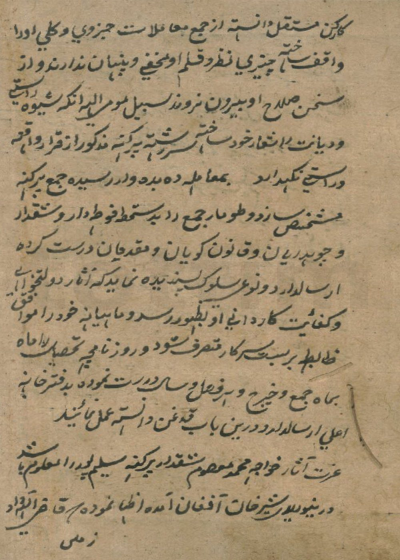 کارکن مستقل دانسته از جمع معاملات جزوی و کلی او را
واقف ساخته چیزی از نظر و قلم او مخفی و پنهان ندارند و از
سخن صلاح او بیرون نروند سبیل مومی الیه آنکه شیوه راستی
و دیانت را شعار خود ساخته سررشته پرگنه مذکور از قرار واقعه
و راستی نگهدارد بمعامله ده بده وارسیده جمع پرگنه
مشخص سازد و طومار جمع را بدستخط فوطه‌دار و شقدار
و چودهریان و قانون گویان و مقدمان درست کرده
ارسال دارد و نوعی سلوک پسندیده نماید که آثار دولتخواهی
و کفایت کاردانی او بظهور رسد و ماهیانه خود را موافق
ضابطه بر سر سرکار متصرف شود و روزنامچه تحصیل را ماه
بماه جمع و خرج و هر فصل و سال درست نموده بدفترخانه
اعلی ارسال دارد درین باب قدغن دانسته عمل نمایند
عزت آثار خواجه محمد معصوم شقدار پرگنه سلیم پور را معلوم باشد
درینولا شیرخان افغان آمده اظهار نموده که قاضی اله داد